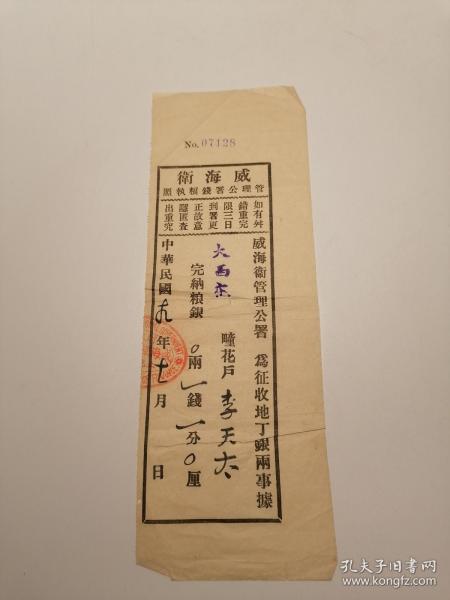 No. 07428
威海衛
管理公署錢糧執照
如有舛
錯重完
限三日
到署更
正故意
隱匿查
出重究
威海衛管理公署 為征收地丁銀兩事據
大西 疃花戶 李天太
完納粮銀 〇兩 一錢 一分 〇厘
中華民國 十九年 十一月 日
孔夫子旧书网
www.kongfz.com